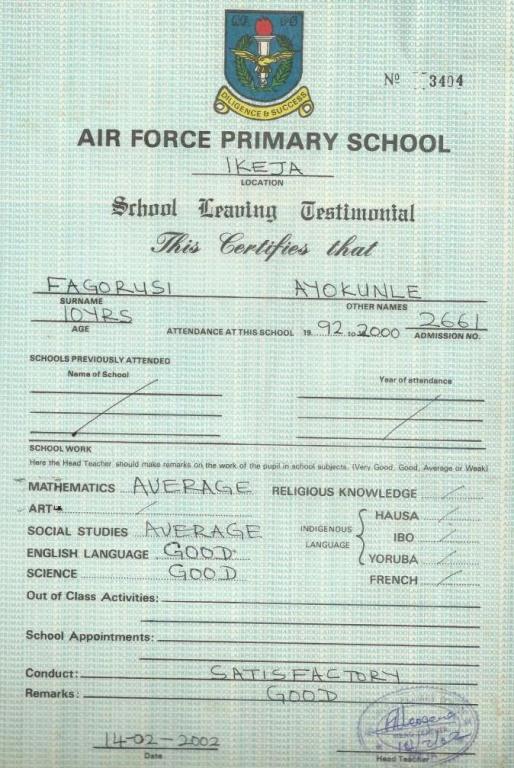 DILIGENCE & SUCCESS
Nº 3404
AIR FORCE PRIMARY SCHOOL
IKEJA
LOCATION
School Leaving Testimonial
This Certifies that
FAGORUSI AYOKUNLE
SURNAME OTHER NAMES
10YRS
AGE ATTENDANCE AT THIS SCHOOL 19 92 to 2000 2661
ADMISSION NO.
SCHOOLS PREVIOUSLY ATTENDED
Name of School Year of attendance
SCHOOL WORK
Here the Head Teacher should make remarks on the work of the pupil in school subjects. (Very Good, Good, Average or Weak)
MATHEMATICS AVERAGE RELIGIOUS KNOWLEDGE
ART
HAUSA
SOCIAL STUDIES AVERAGE INDIGENOUS LANGUAGE IBO
ENGLISH LANGUAGE GOOD YORUBA
SCIENCE GOOD FRENCH
Out of Class Activities:
School Appointments:
Conduct: SATISFACTORY
Remarks: GOOD
14-02-2002
Date Head Teacher